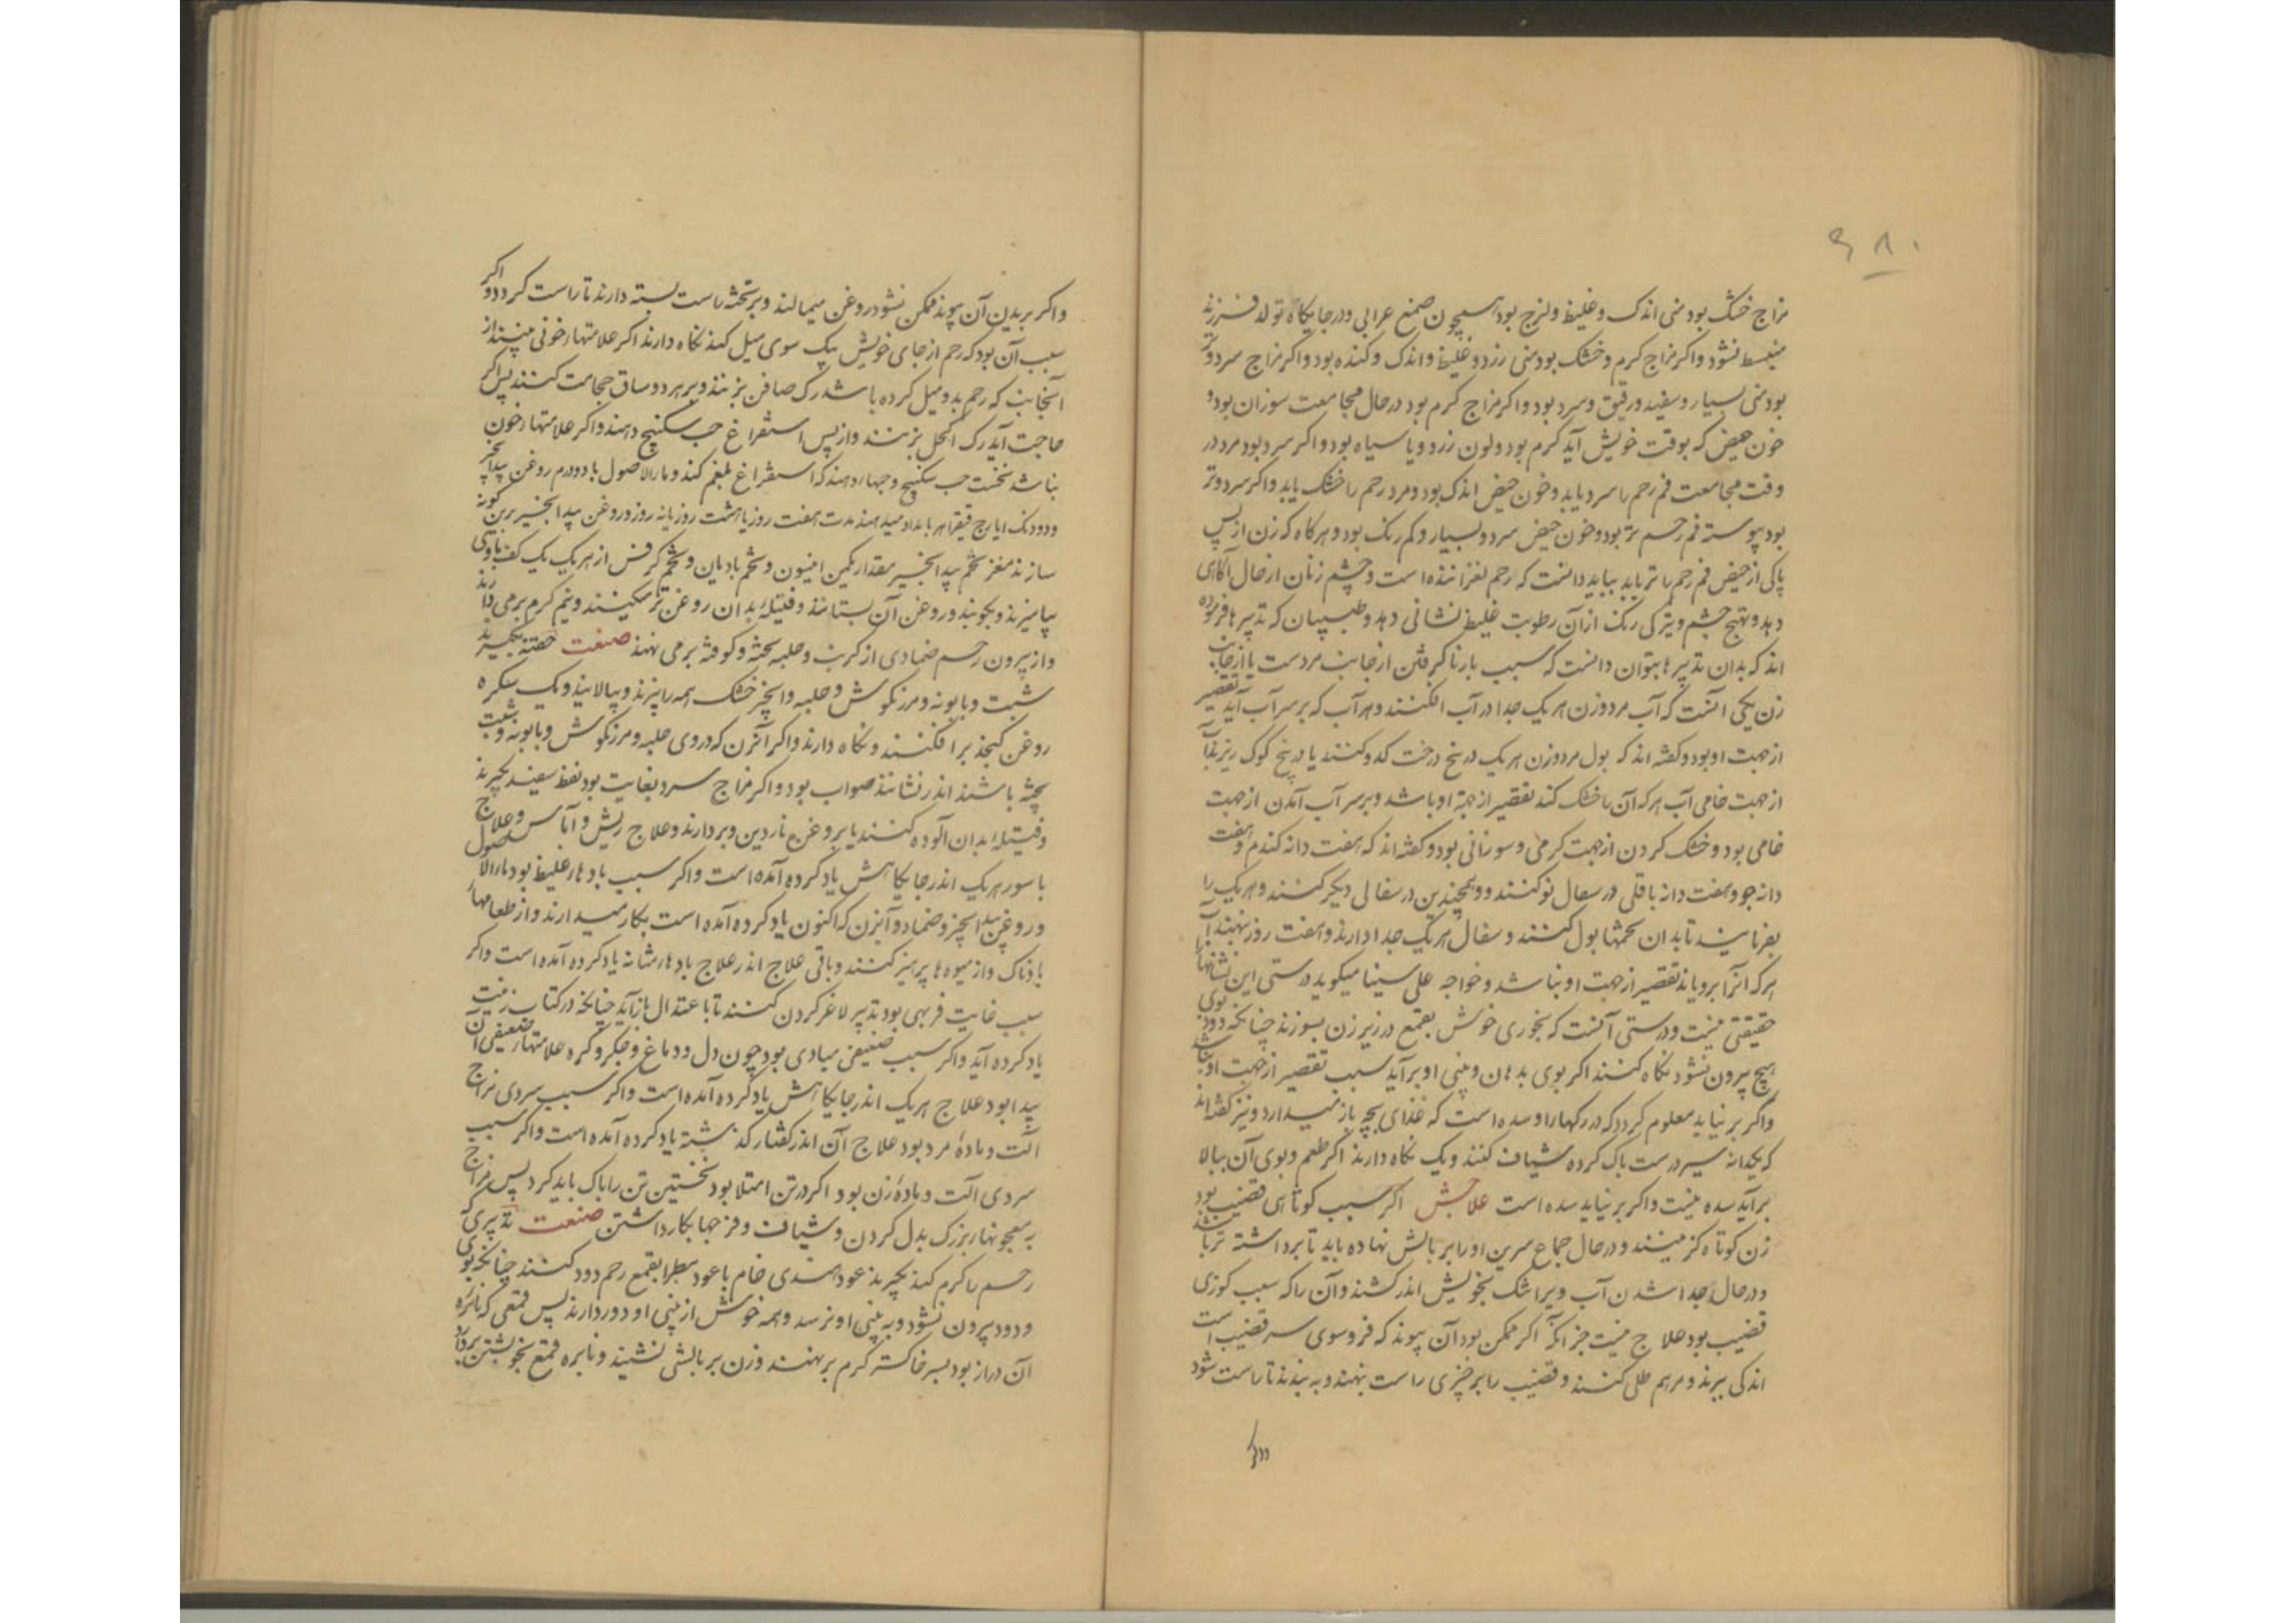 ۶۸۰
مزاج خشک بود منی اندک و غلیظ و لزج بود همچون صمغ عرابی و درجایکاه تولد فرزند
منبسط نشود واکر مزاج کرم و خشک بود منی زرد و غلیظ و اندک و کنده بود واکر مزاج سرد وتر
بود منی بسیار و سفید و رقیق و سرد بود واکر مزاج کرم بود در حال مجامعت سوزان بود و
خون حیض که بوقت خویش آید کرم بود و لون زرد و یا سیاه بود واکر سرد بود مرد در
وقت مجامعت فم رحم را سرد یابد و خون حیض اندک بود و مرد رحم را خشک یابد واکر سرد و تر
بود پیوسته فم رحم تر بود و خون حیض سرد و بسیار و کم رنک بود و هرکاه که زن از پس
پاکی از حیض فم رحم را تر یابد بباید دانست که رحم لغزاننده است و چشم زنان از حال آکاهی
دهد و تهبج چشم و تیرکی رنک از آن رطوبت غلیظ نشانی دهد و طبیبان که تدبیرها فرموده
اند که بدان تدبیرها بتوان دانست که سبب بار ناکرفتن از جانب مردست یا از جانب
زن یکی آنست که آب مرد و زن هریک جدا در آب افکنند و هر آب که بر سر آب آید تقصیر
از جهت او بود و کفته اند که بول مرد و زن هریک در بیخ درخت کدو کنند یا در بیخ کوک ریزند
از جهت خامی آب هرکه آن را خشک کند تقصیر از جهة او باشد و بر سر آب آمدن از جهت
خامی بود و خشک کردن از جهت کرمی و سوزانی بود و کفته اند که هفت دانه کندم و هفت
دانه جو و هفت دانه باقلی در سفال نو کنند و همچندین در سفالی دیکر کنند و هریک را
بفرمایند تا بدان تخمها بول کنند و سفال هریک جدا دارند و هفت روز بنهند
هرکه آنرا برویاند تقصیر از جهت او نباشد و خواجه علی سینا میکوید درستی این نشانیها
حقیقتی نیست و درستی آنست که بخوری خوش بقمع در زیر زن بسوزند چنانکه دود و بوی
هیچ بیرون نشود نکاه کنند اکر بوی بدهان و بینی او برآید سبب تقصیر از جهت او نباشد
واکر برنیاید معلوم کردد که در رکها را و سده است که غذای بچه باز میدارد و نیز کفته اند
که یکدانه سیر درست پاک کرده شیاف کنند و یک نکاه دارند اکر طعم و بوی آن ببالا
برآید سده نیست واکر برنیاید سده است علاجش اکر سبب کوتاهی قضیب بود
زن کوتاه کزینند و در حال جماع سرین او را بر بالش نهاده باید تا برداشته تر باشد
و در حال جدا شدن آب ویرا تنک بخویش اندر کشند و آن را که سبب کوژی
قضیب بود علاج نیست جز آنکه اکر ممکن بود آن پیوند که فروسوی سر قضیب است
اندکی ببرند و مرهم طلی کنند و قضیب را بر چیزی راست بنهند و ببندند تا راست شود
واکر بریدن آن پیوند ممکن نشود روغن میمالند و بر تخته راست بسته دارند تا راست کردد واکر
سبب آن بود که رحم از جای خویش بیک سوی میل کند نکاه دارند اکر علامتهاء خونی بینند از
آنجانب که رحم بدو میل کرده باشد رک صافن بزنند و بر هر دو ساق حجامت کنند پس اکر
حاجت آید رک اکحل بزنند و از پس استفراغ حب سکبینج دهند واکر علامتهاء خون
نباشد نخست حب سکبینج و جهاء دهند که استفراغ بلغم کند و ماء الاصول با دو درم روغن بیدانجیر
و دو دنک ایارج فیقرا هر بامداد میدهند مدت هفت روز یا هشت روز یا نه روز و روغن بیدانجیر برین کونه
سازند مغز تخم بیدانجیر مقدار یکمن انیسون و تخم بادیان و تخم کرفس از هریک یک کف با وی
بیامیزند و بجوشند و روغن آن بستانند و فتیله بدان روغن تر میکنند و نیم کرم برمی دارند
و از بیرون رحم ضمادی از کرنب و حلبه پخته و کوفته برمی نهند صنعت حقنه بکیرند
شبت و بابونه و مرزنکوش و حلبه و انجیر خشک همه را بپزند و بپالایند و یک سکره
روغن کنجد برافکنند و نکاه دارند واکر آبزن که در وی حلبه و مرزنکوش و بابونه و شبت
پخته باشند اندر نشانند صواب بود واکر مزاج سرد بغایت بود نفط سفید بکیرند
و فتیله بدان آلوده کنند یا بروغن ناردین و بردارند و علاج ریش و آماس و علاج
باسور هریک اندر جایکاهش یاد کرده آمده است واکر سبب بادهاء غلیظ بود ماء الاصول
و روغن بیدانجیر و ضماد و آبزن که اکنون یاد کرده آمده است بکار میدارند و از طعامهاء
بادناک و از میوه ها پرهیز کنند و باقی علاج اندر علاج بادهاء مثانه یاد کرده آمده است واکر
سبب غایت فربهی بود تدبیر لاغر کردن کنند تا با عتدال بازآید چنانکه در کتاب زینت
یاد کرده آید واکر سبب ضعیفی مبادی بود چون دل و دماغ و جکر و کرده علامتهاء ضعیفی آن
پیدا بود علاج هریک اندر جایکاهش یاد کرده آمده است واکر سبب سردی مزاج
آلت و مادهٔ مرد بود علاج آن اندر کفتار کذشته یاد کرده آمده است واکر سبب
سردی آلت و مادهٔ زن بود اکر در تن امتلا بود نخستین تن را پاک باید کرد پس مزاج
بمعجونهاء بزرک بدل کردن و شیاف و فرزجها بکار داشتن صنعت تدبیری که
رحم را کرم کند بکیرند عود هندی خام با عود مطرا بقمع رحم دود کنند چنانکه بوی
و دود بیرون نشود و به بینی او نرسد و همه خوش از بینی او دور دارند پس قمعی که نایزه
آن دراز بود بسر خاکستر کرم برنهند و زن بر بالشی نشیند و نایزه قمع بخویشتن بردارد